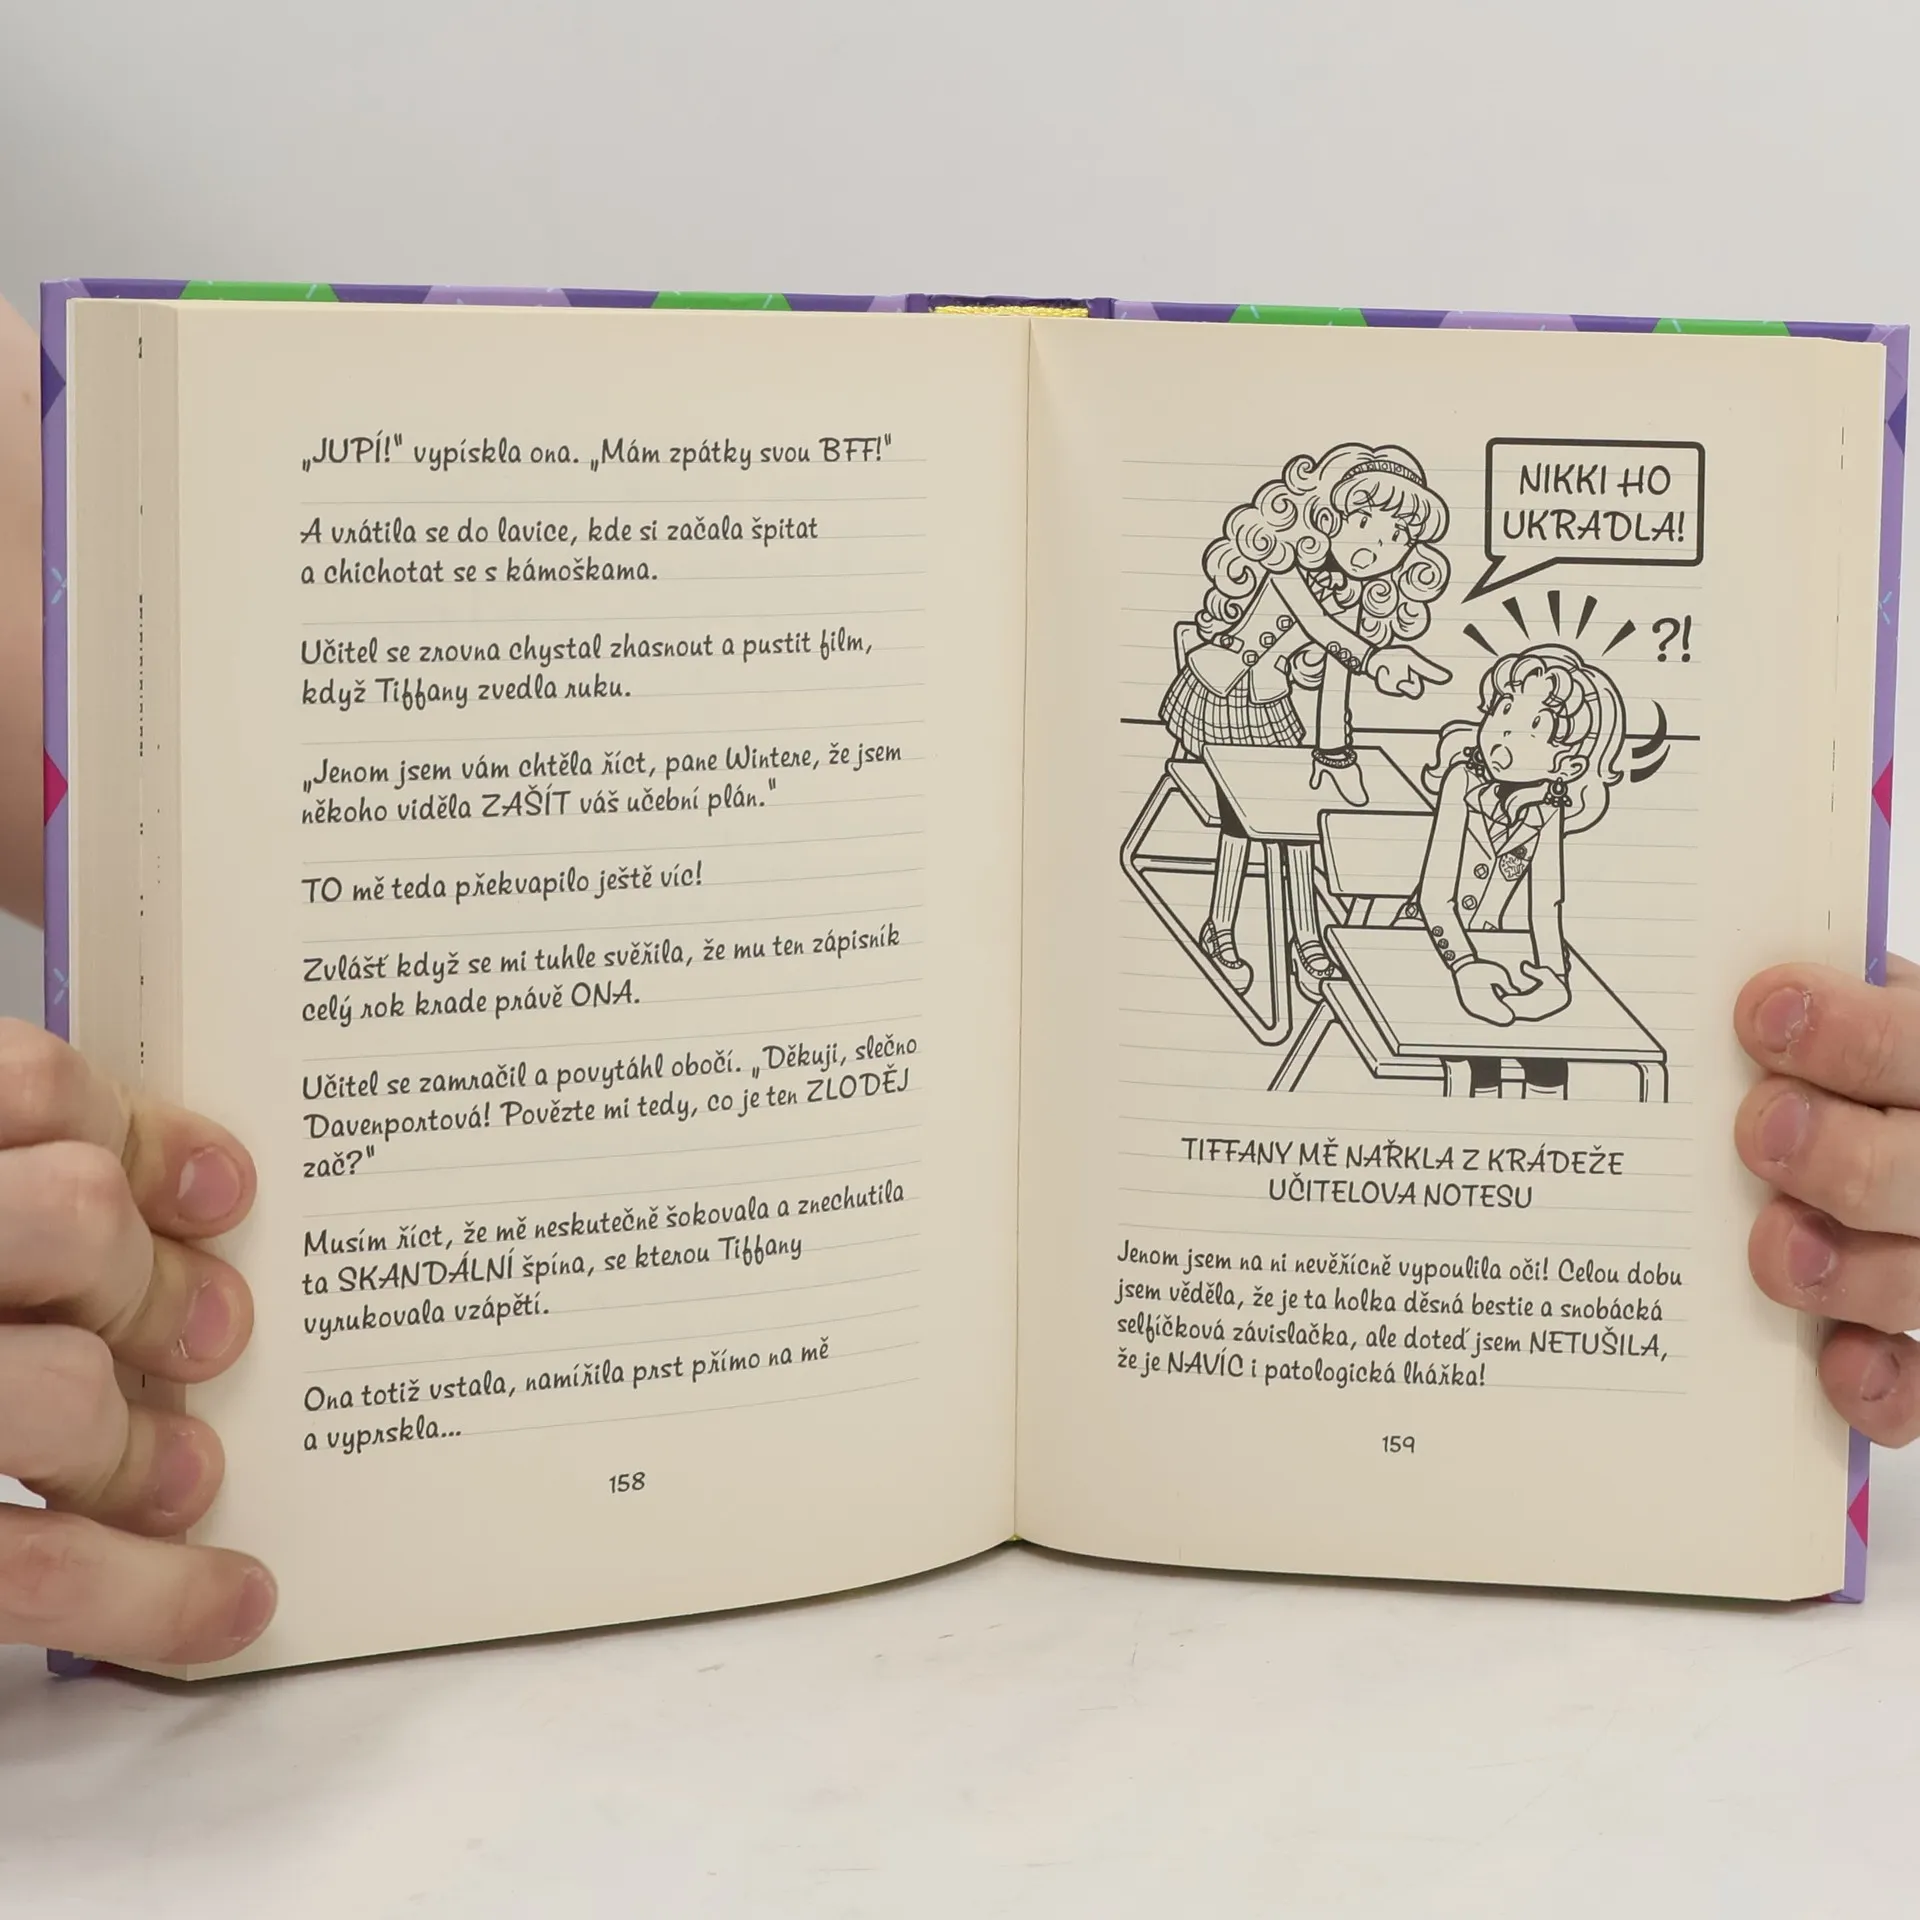 „JUPÍ!" vypískla ona. „Mám zpátky svou BFF!"
A vrátila se do lavice, kde si začala špitat
a chichotat se s kámoškama.
Učitel se zrovna chystal zhasnout a pustit film,
když Tiffany zvedla ruku.
„Jenom jsem vám chtěla říct, pane Wintere, že jsem
někoho viděla ZAŠÍT váš učební plán."
TO mě teda překvapilo ještě víc!
Zvlášť když se mi tuhle svěřila, že mu ten zápisník
celý rok krade právě ONA.
Učitel se zamračil a povytáhl obočí. „Děkuji, slečno
Davenportová! Povězte mi tedy, co je ten ZLODĚJ
zač?"
Musím říct, že mě neskutečně šokovala a znechutila
ta SKANDÁLNÍ špína, se kterou Tiffany
vyrukovala vzápětí.
Ona totiž vstala, namířila prst přímo na mě
a vyprskla...
158
NIKKI HO
UKRADLA!
?!
TIFFANY MĚ NAŘKLA Z KRÁDEŽE
UČITELOVA NOTESU
Jenom jsem na ni nevěřícně vypoulila oči! Celou dobu
jsem věděla, že je ta holka děsná bestie a snobácká
selfíčková závislačka, ale doteď jsem NETUŠILA,
že je NAVÍC i patologická lhářka!
159